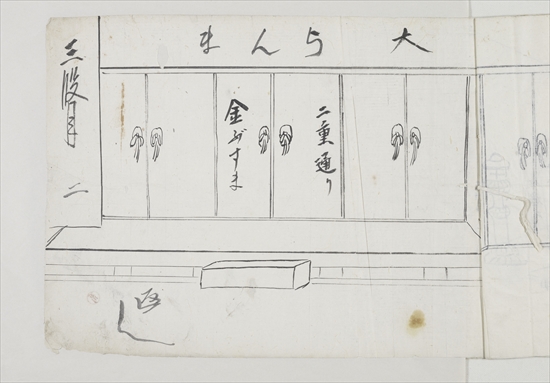 大らんま
二重通り
金ぶすま
三段目 二
返し